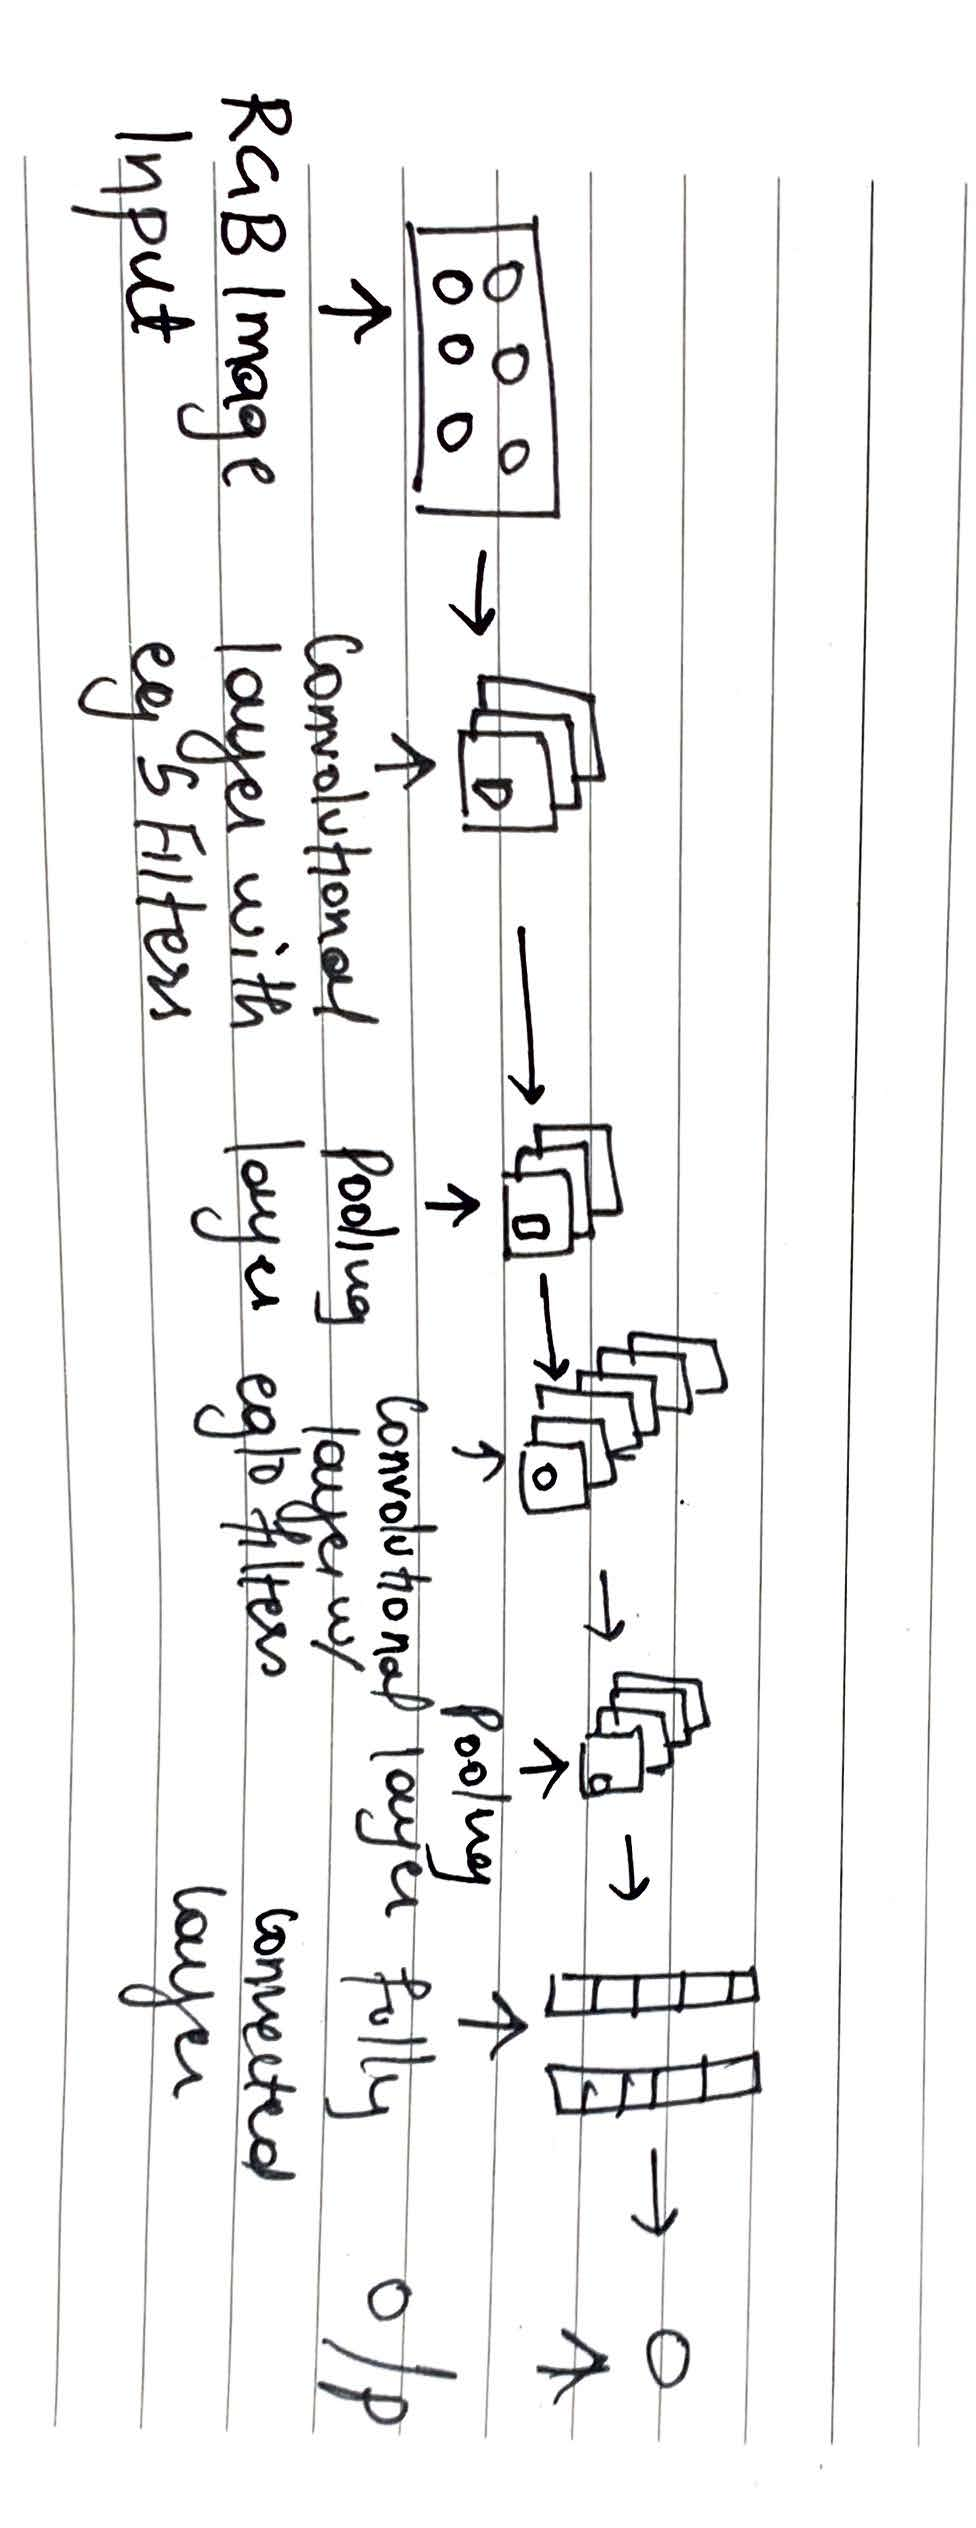 RGB Image
Input
Convolutional
layer with
eg 5 Filters
Pooling
layer
Convolutional layer
layer w/
eg 10 filters
Pooling
fully
connected
layer
O/P